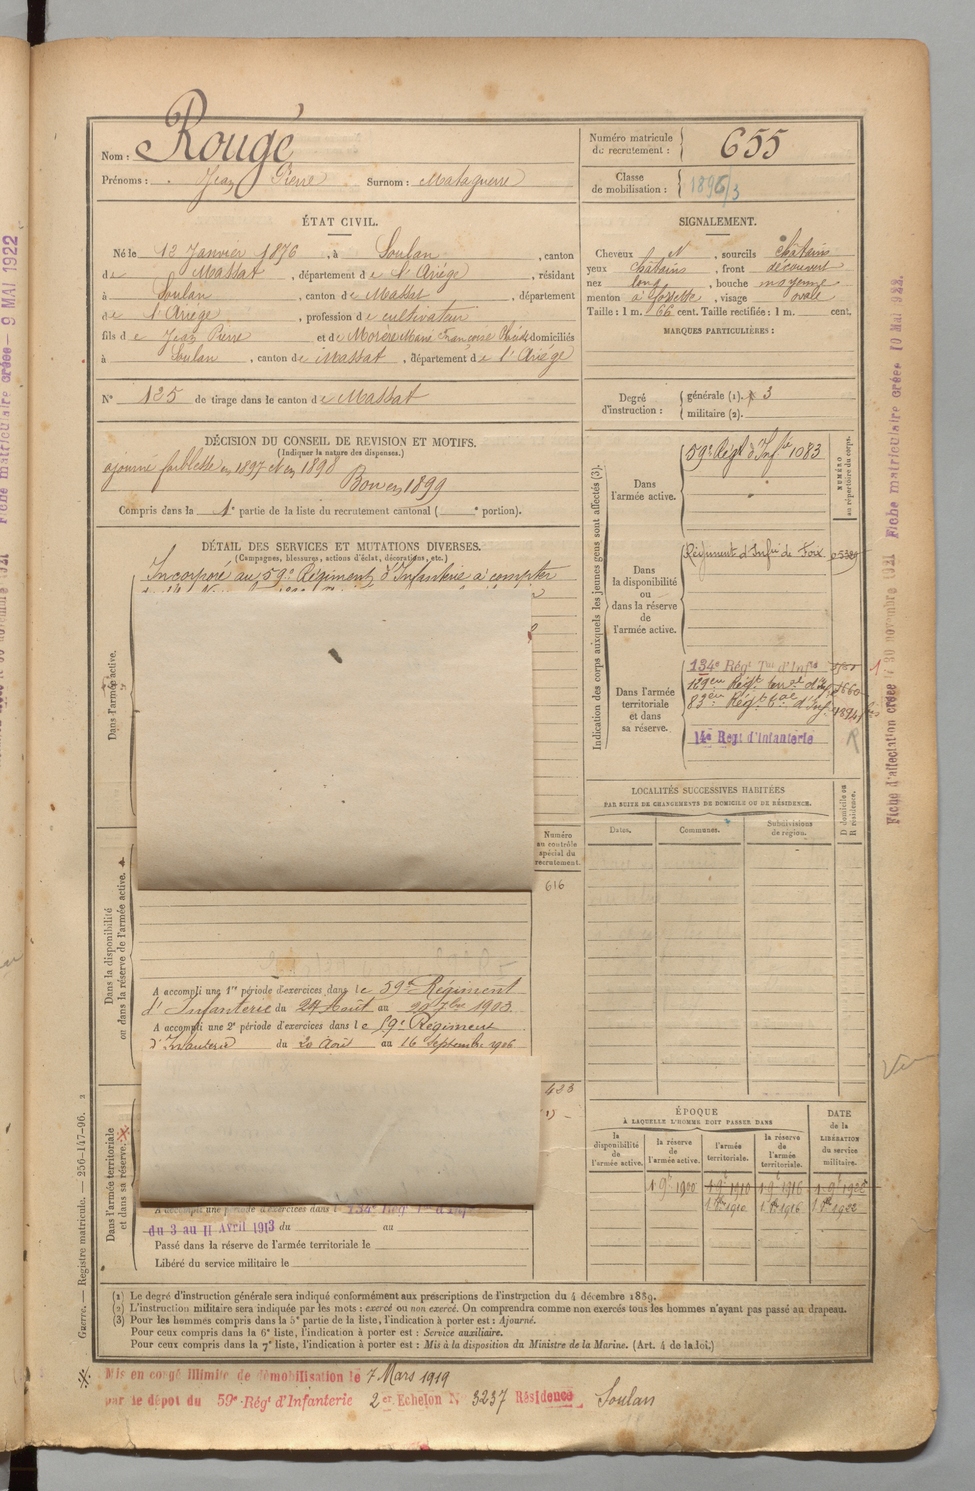 Nom : Rougé
Prénoms : Jean Pierre Surnom : Mataguerre
Numéro matricule du recrutement : 655
Classe de mobilisation : 1896/3
ÉTAT CIVIL.
Né le 12 Janvier 1876, à Soulan, canton
de Massat, département de l'Ariège, résidant
à Soulan, canton de Massat, département
de l'Ariège, profession de cultivateur
fils de Jean Pierre et de Morère Marie Françoise domiciliés
à Soulan, canton de Massat, département de l'Ariège
N° 125 de tirage dans le canton de Massat
SIGNALEMENT.
Cheveux N, sourcils châtains
yeux châtains, front découvert
nez long, bouche moyenne
menton à fossette, visage ovale
Taille : 1 m. 66 cent. Taille rectifiée : 1 m. cent.
MARQUES PARTICULIÈRES :
Degré d'instruction : générale (1). 3
militaire (2).
DÉCISION DU CONSEIL DE REVISION ET MOTIFS.
(Indiquer la nature des dispenses.)
ajourné faiblesse en 1897 et en 1898
Bon en 1899
Compris dans la 1e partie de la liste du recrutement cantonal ( e portion).
DÉTAIL DES SERVICES ET MUTATIONS DIVERSES.
(Campagnes, blessures, actions d'éclat, décorations, etc.)
Incorporé au 59e Régiment d'Infanterie à compter
Dans l'armée active.
Numéro au contrôle spécial du recrutement.
616
Dans la disponibilité ou dans la réserve de l'armée active.
A accompli une 1re période d'exercices dans le 59e Régiment
d'Infanterie du 24 Août au 20 7bre 1903
A accompli une 2e période d'exercices dans le 59e Régiment
d'Infanterie du 20 Août au 16 Septembre 1906
423
Dans l'armée territoriale et dans sa réserve.
A accompli une période d'exercices dans l 134e Rég
du 3 au 11 Avril 1913 du au
Passé dans la réserve de l'armée territoriale le
Libéré du service militaire le
Indication des corps auxquels les jeunes gens sont affectés (3).
NUMÉRO au répertoire du corps.
Dans l'armée active.
59e Régt d'Infie 1083
Dans la disponibilité ou dans la réserve de l'armée active.
Régiment d'Infie de Foix
Dans l'armée territoriale et dans sa réserve.
134e Régt Tal d'Infie
129em Régt terral d'Inf
83em Régt d'Inf
14e Regt d'Infanterie
R
LOCALITÉS SUCCESSIVES HABITÉES
PAR SUITE DE CHANGEMENTS DE DOMICILE OU DE RÉSIDENCE.
Dates. Communes. Subdivisions de région.
D domicile ou R résidence.
ÉPOQUE
À LAQUELLE L'HOMME DOIT PASSER DANS
la disponibilité de l'armée active. la réserve de l'armée active. l'armée territoriale. la réserve de l'armée territoriale.
DATE de la LIBÉRATION du service militaire.
1 9e 1900 1 9e 1910 1 9e 1916 1 9e 1922
1 8bre 1910 1 8bre 1916 1 8bre 1922
(1) Le degré d'instruction générale sera indiqué conformément aux prescriptions de l'instruction du 4 décembre 1889.
(2) L'instruction militaire sera indiquée par les mots : exercé ou non exercé. On comprendra comme non exercés tous les hommes n'ayant pas passé au drapeau.
(3) Pour les hommes compris dans la 5e partie de la liste, l'indication à porter est : Ajourné.
Pour ceux compris dans la 6e liste, l'indication à porter est : Service auxiliaire.
Pour ceux compris dans la 7e liste, l'indication à porter est : Mis à la disposition du Ministre de la Marine. (Art. 4 de la loi.)
Mis en congé illimité de démobilisation le 7 Mars 1919
par le dépôt du 59e Régt d'Infanterie 2er Echelon N° 3237 Résidence Soulan
Guerre. — Registre matricule. — 256-147-96.
Fiche matriculaire créée — 9 MAI 1922
Fiche d'affectation créée / 30 novembre 1921 Fiche matriculaire créée 10 MAI 1922.